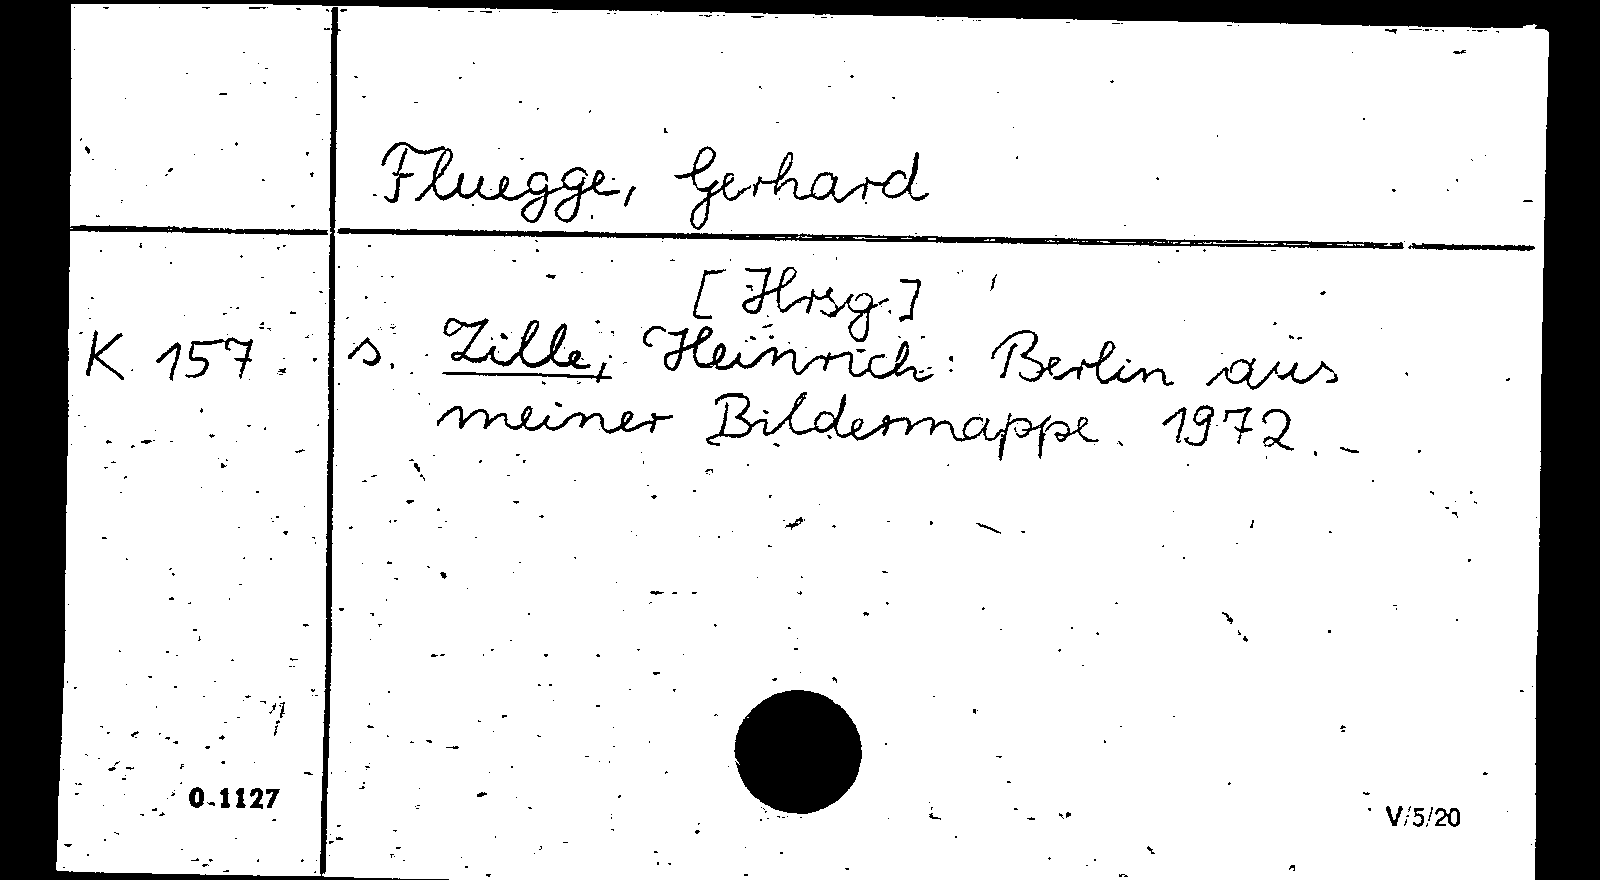 Fluegge, Gerhard
[Hrsg.]
K 157 s. Zille, Heinrich: Berlin aus
meiner Bildermappe. 1972. -
0.1127
V/5/20